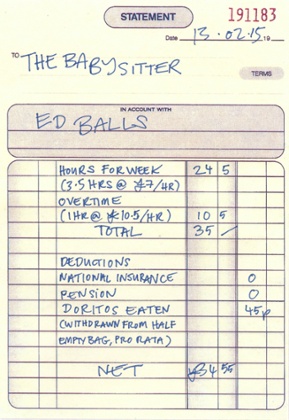 STATEMENT
191183
Date 13.02.15 19
TO THE BABYSITTER
TERMS
IN ACCOUNT WITH
ED BALLS
HOURS FOR WEEK 24 5
(3.5 HRS @ £7/HR)
OVERTIME
(1HR @ £10.5/HR) 10 5
TOTAL 35 /
DEDUCTIONS
NATIONAL INSURANCE 0
PENSION 0
DORITOS EATEN 45p
(WITHDRAWN FROM HALF
EMPTY BAG, PRO RATA)
NET £34 55